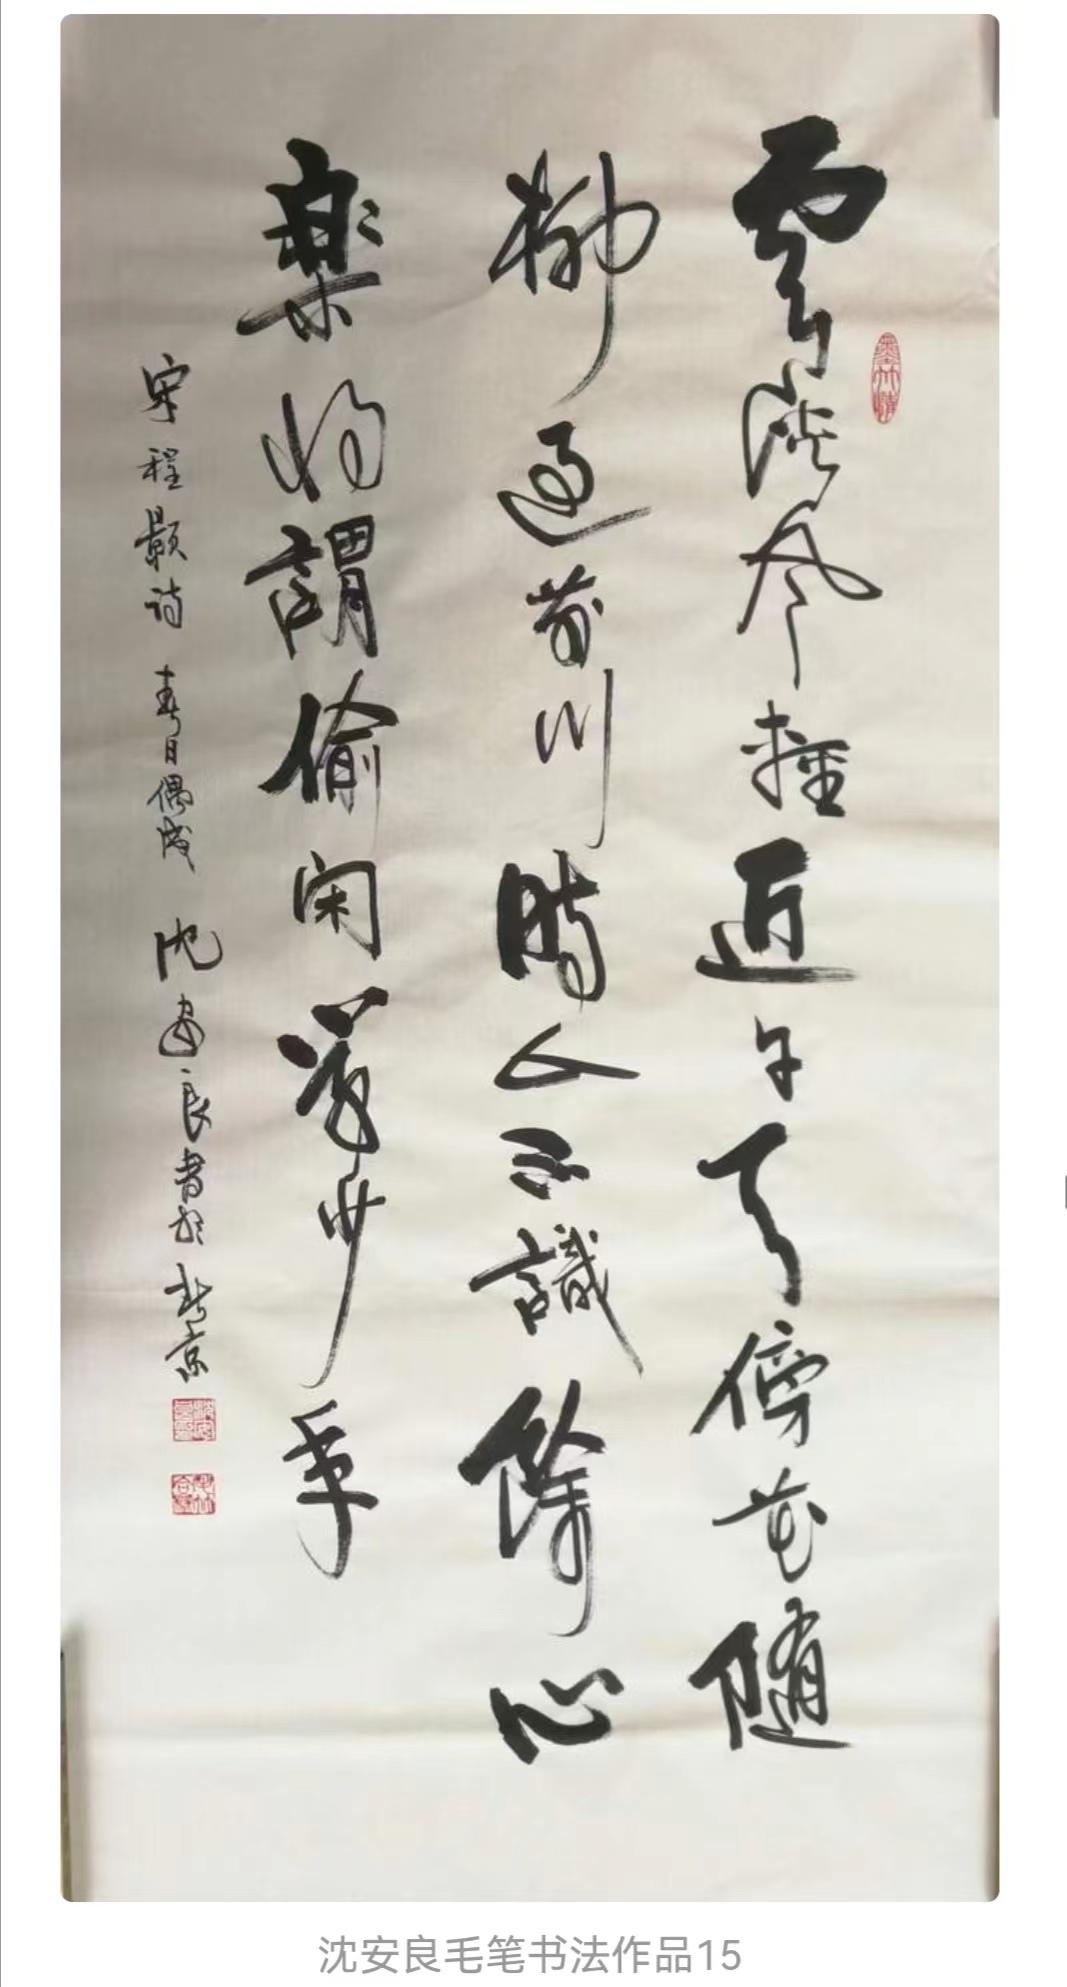 雲淡風輕近午天傍花隨
柳過前川時人不識余心
樂將謂偷閑學少年
宋程顥詩 春日偶成 沈安良書於北京
沈安良毛笔书法作品15